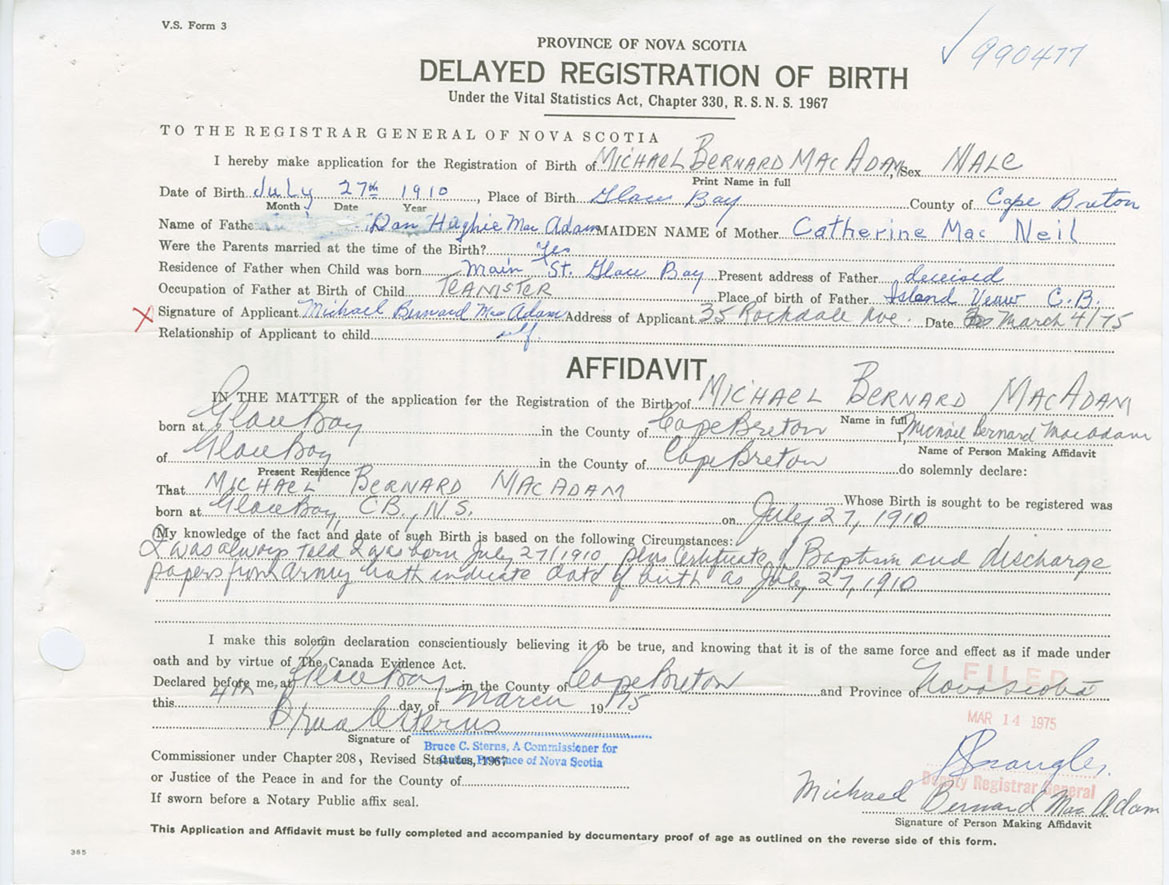 V.S. Form 3
✓ 990477
PROVINCE OF NOVA SCOTIA
DELAYED REGISTRATION OF BIRTH
Under the Vital Statistics Act, Chapter 330, R.S.N.S. 1967
TO THE REGISTRAR GENERAL OF NOVA SCOTIA
I hereby make application for the Registration of Birth of MICHAEL BERNARD MAC ADAM, Sex MALE
Print Name in full
Date of Birth July 27th 1910, Place of Birth Glace Bay County of Cape Breton
Month Date Year
Name of Father Dan Hughie Mac Adam MAIDEN NAME of Mother Catherine Mac Neil
Were the Parents married at the time of the Birth? Yes
Residence of Father when Child was born Main St. Glace Bay Present address of Father deceised
Occupation of Father at Birth of Child TEAMSTER Place of birth of Father Island Veiw C.B.
X Signature of Applicant Michael Bernard Mac Adam Address of Applicant 35 Rockdale Ave. Date March 4/75
Relationship of Applicant to child self.
AFFIDAVIT
IN THE MATTER of the application for the Registration of the Birth of MICHAEL BERNARD MACADAM
born at Glace Bay in the County of Cape Breton Name in full, Michael Bernard MacAdam
of Glace Bay in the County of Cape Breton Name of Person Making Affidavit do solemnly declare:
Present Residence
That MICHAEL BERNARD MACADAM Whose Birth is sought to be registered was
born at Glace Bay, CB., N.S. on July 27, 1910
My knowledge of the fact and date of such Birth is based on the following Circumstances:
I was always told I was born July 27/1910 plus Certificate of Baptism and discharge
papers from Army both indicate date of birth as July 27, 1910
I make this solemn declaration conscientiously believing it to be true, and knowing that it is of the same force and effect as if made under
oath and by virtue of The Canada Evidence Act.
Declared before me, at Glace Bay in the County of Cape Breton and Province of Nova Scotia
FILED
this 4th day of March 1975
MAR 14 1975
Signature of
Bruce C. Sterns, A Commissioner for
Commissioner under Chapter 208, Revised Statutes, 1967
Province of Nova Scotia
or Justice of the Peace in and for the County of
Deputy Registrar General
Michael Bernard Mac Adam
If sworn before a Notary Public affix seal.
Signature of Person Making Affidavit
This Application and Affidavit must be fully completed and accompanied by documentary proof of age as outlined on the reverse side of this form.
365